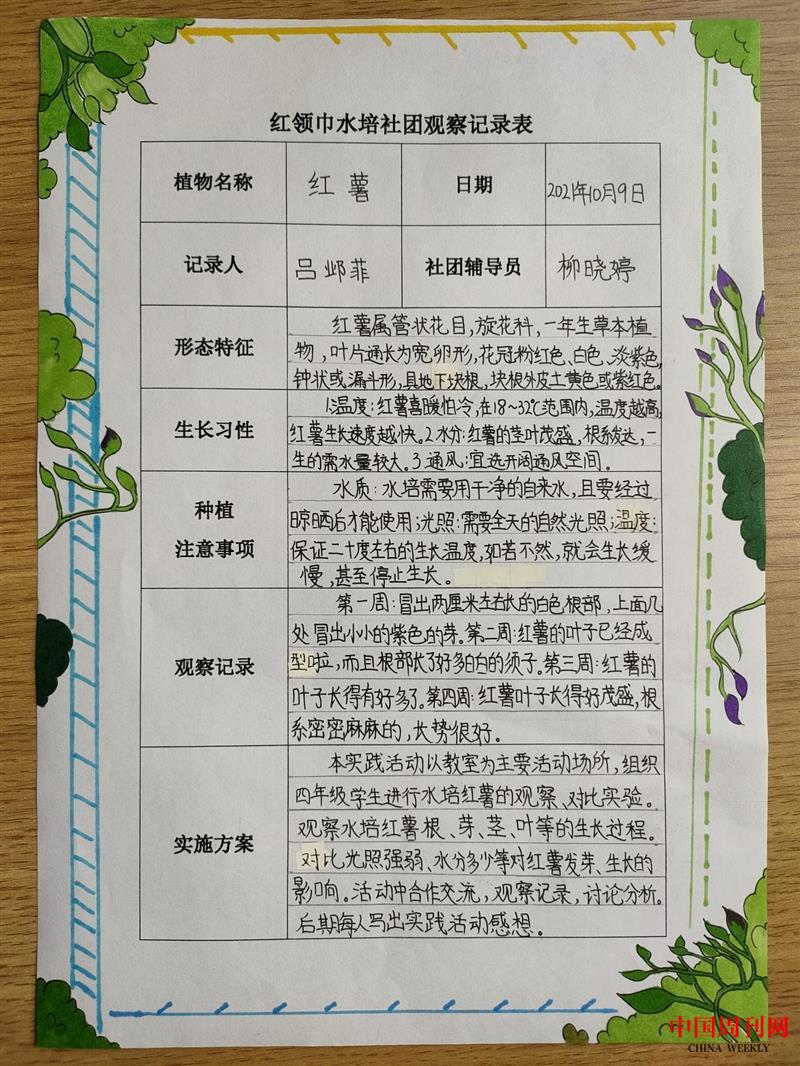 红领巾水培社团观察记录表
植物名称 红薯 日期 2021年10月9日
记录人 吕邺菲 社团辅导员 柳晓婷
形态特征
红薯属管状花目，旋花科，一年生草本植
物，叶片通长为宽卵形，花冠粉红色、白色、淡紫色，
钟状或漏斗形，具地下块根，块根外皮土黄色或紫红色。
生长习性
1.温度：红薯喜暖怕冷，在18~32℃范围内，温度越高，
红薯生长速度越快。2.水分：红薯的茎叶茂盛，根系发达，一
生的需水量较大。3.通风：宜选开阔通风空间。
种植
注意事项
水质：水培需要用干净的自来水，且要经过
晾晒后才能使用；光照：需要全天的自然光照；温度：
保证二十度左右的生长温度，如若不然，就会生长缓
慢，甚至停止生长。
观察记录
第一周：冒出两厘米左右长的白色根部，上面几
处冒出小小的紫色的芽。第二周：红薯的叶子已经成
型啦，而且根部长了好多白白的须子。第三周：红薯的
叶子长得有好多了。第四周：红薯叶子长得好茂盛，根
系密密麻麻的，长势很好。
实施方案
本实践活动以教室为主要活动场所，组织
四年级学生进行水培红薯的观察、对比实验。
观察水培红薯根、芽、茎、叶等的生长过程。
对比光照强弱、水分多少等对红薯发芽、生长的
影响。活动中合作交流，观察记录，讨论分析。
后期每人写出实践活动感想。
中国周刊网
CHINA WEEKLY